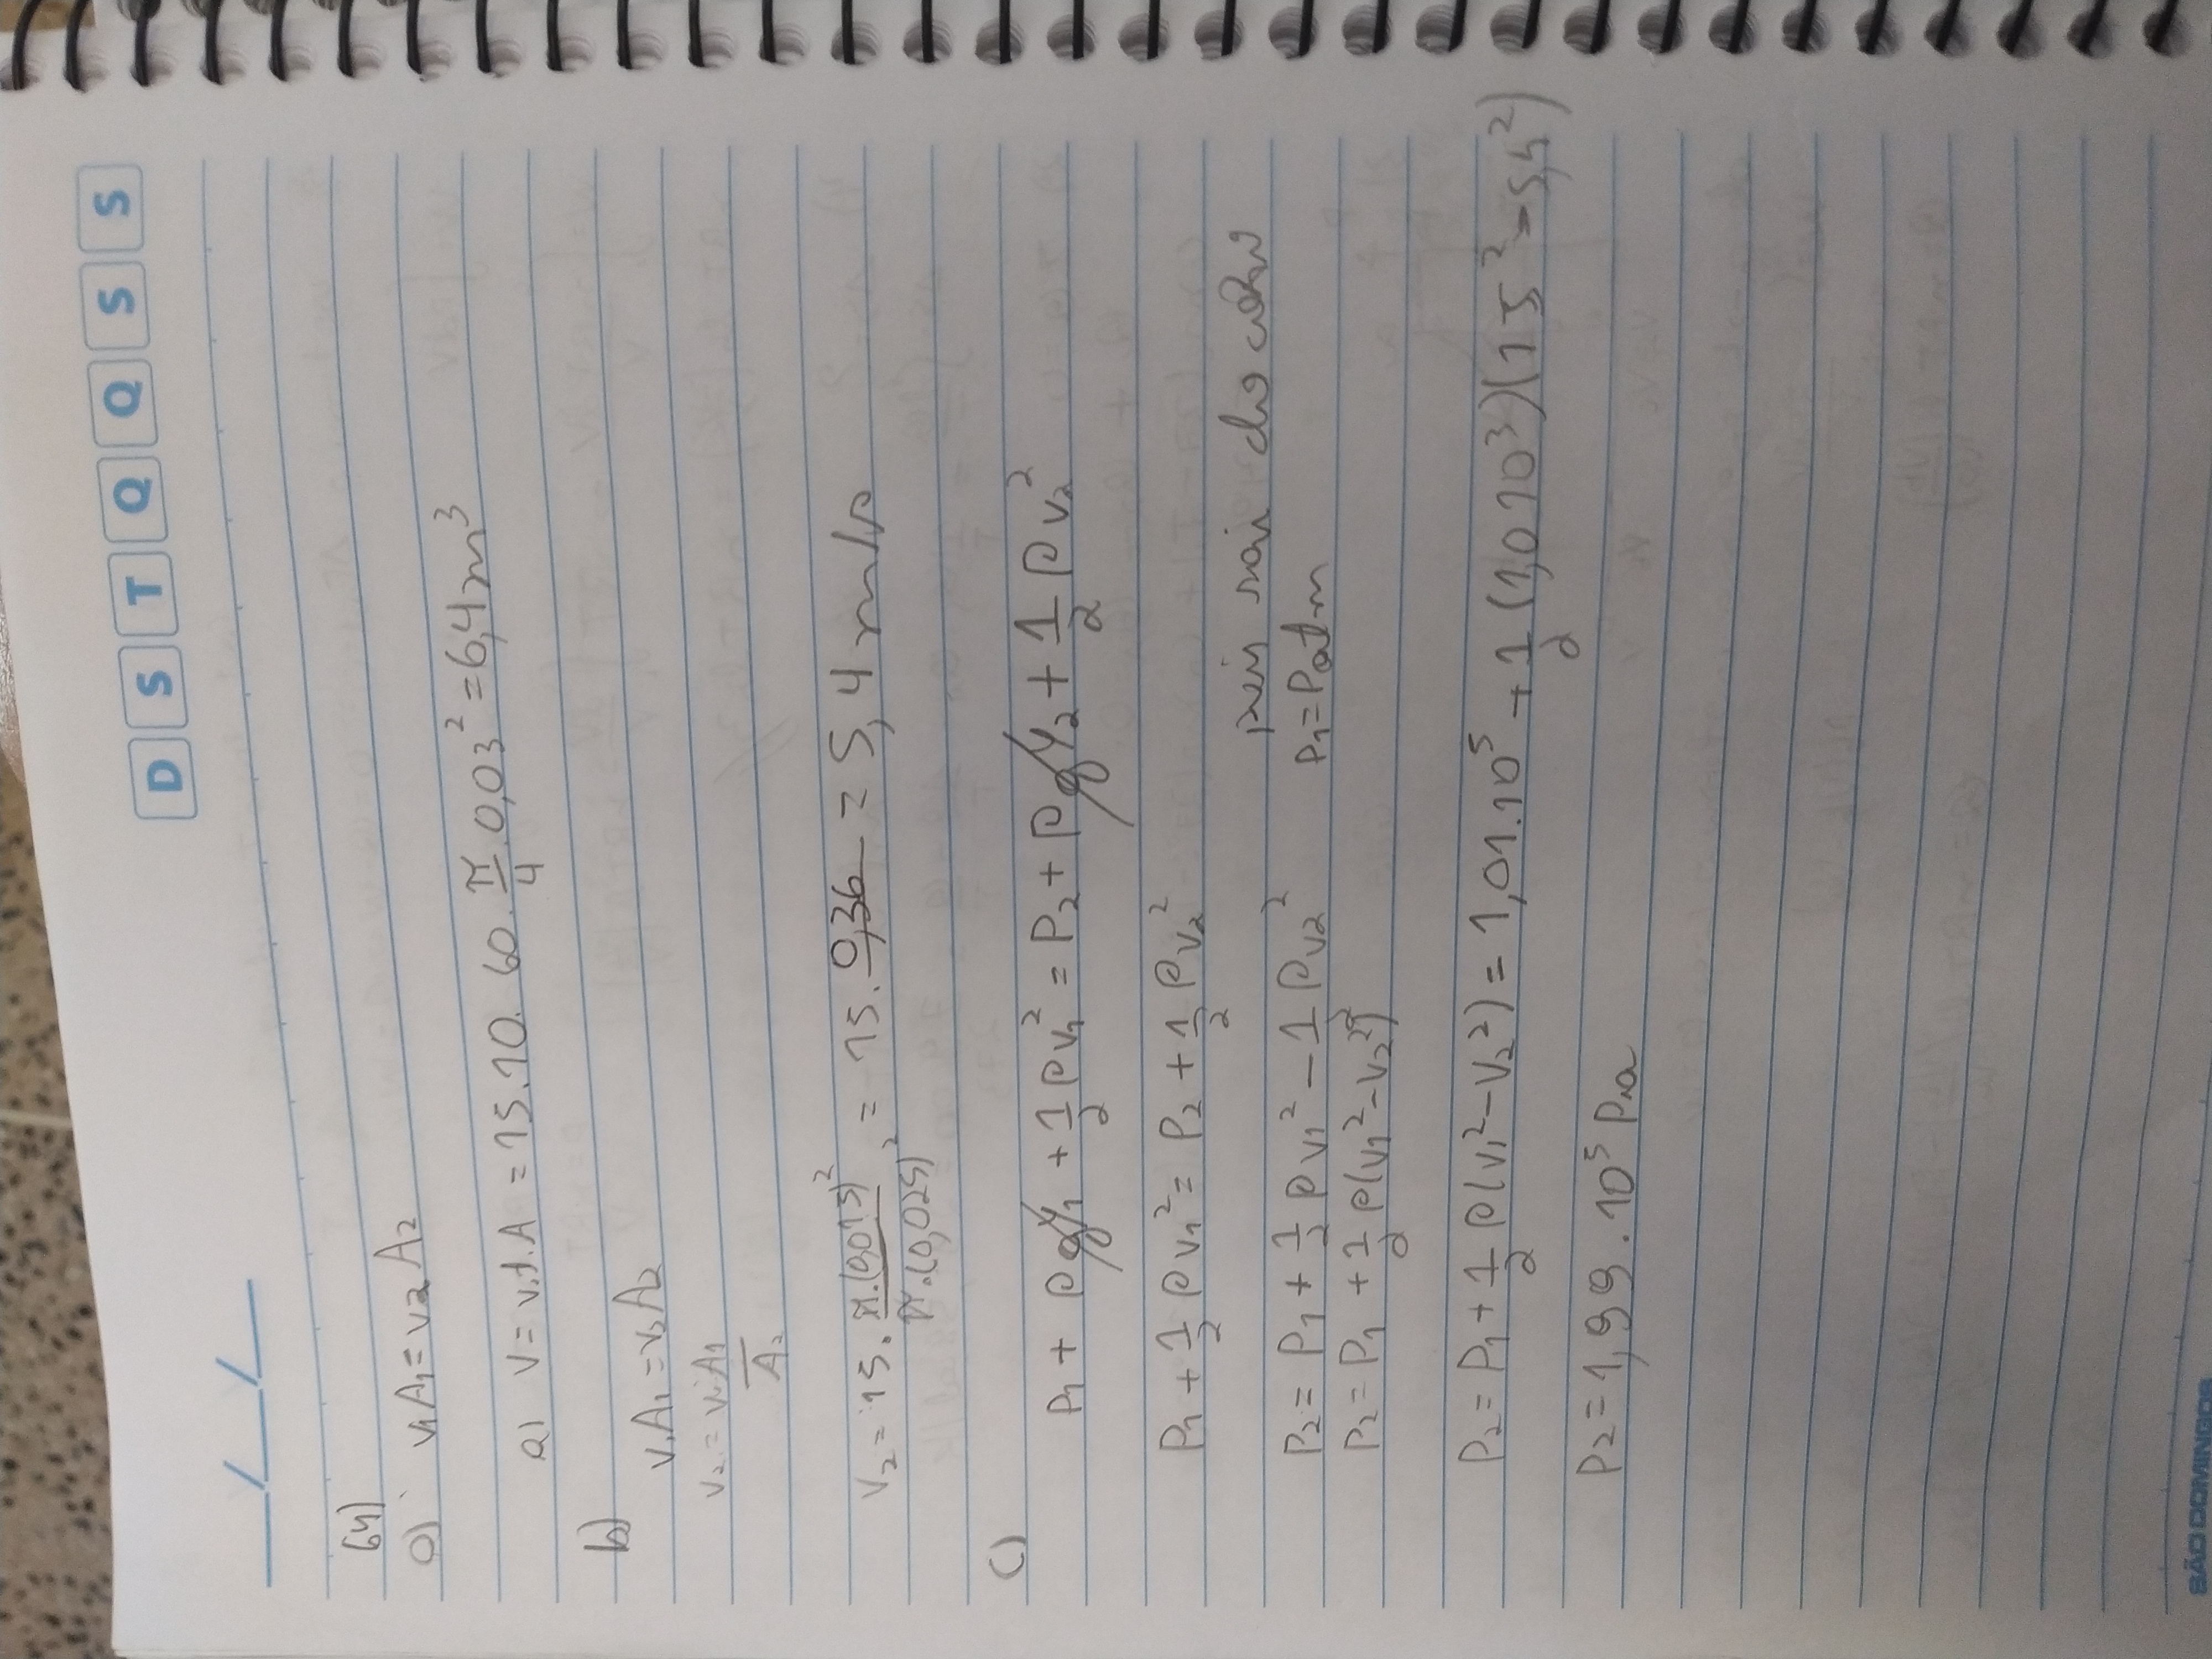 __/__/__
D S T Q Q S S
64)
a) v₁A₁=v₂A₂
a) V=v.t.A = 15.10.60.π/4.0,03²=6,4m³
b)
v₁A₁=v₂A₂
v₂=v₁A₁/A₂
v₂=15.π.(0,015)²/π.(0,025)² = 15.0,36 = 5,4 m/s
c)
P₁ + ρgy₁ + 1/2 ρv₁² = P₂ + ρgy₂ + 1/2 ρv₂²
P₁ + 1/2 ρv₁² = P₂ + 1/2 ρv₂²
P₂ = P₁ + 1/2 ρv₁² - 1/2 ρv₂² pois sai do cano
P₂ = P₁ + 1/2 ρ(v₁²-v₂²) P₁=Patm
P₂ = P₁ + 1/2 ρ(v₁²-v₂²) = 1,01.10⁵ + 1/2 (1,0 10³)(15²-5,4²)
P₂=1,99.10⁵Pa
SÃO DOMINGOS